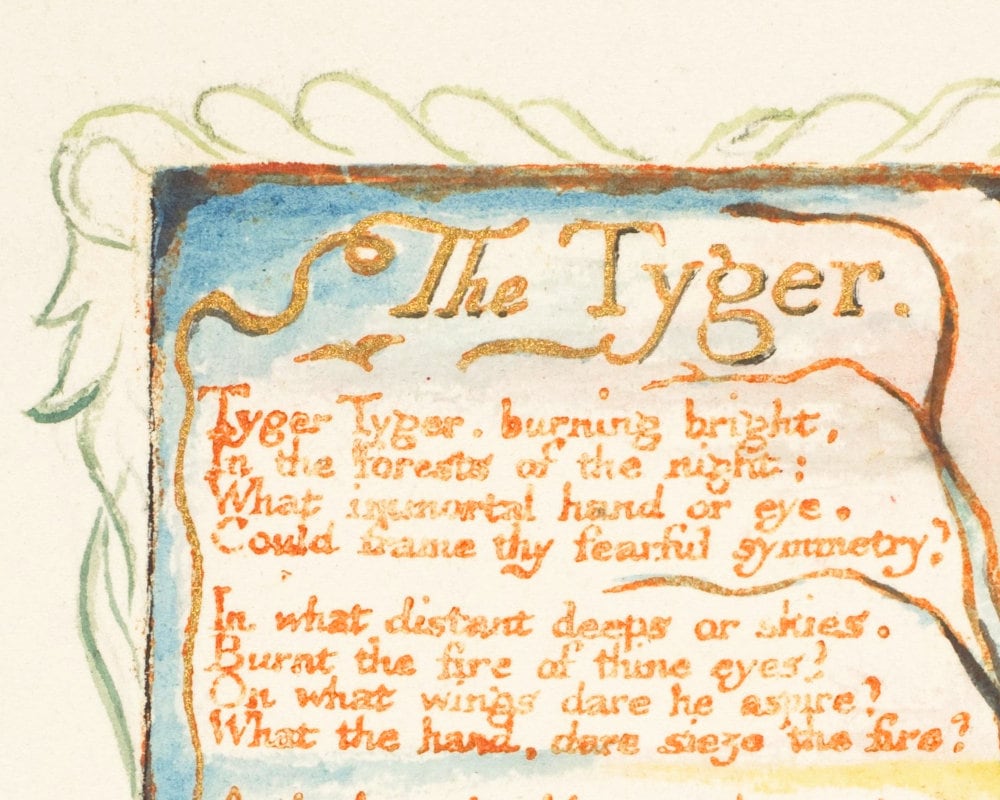 The Tyger.
Tyger Tyger. burning bright,
In the forests of the night:
What immortal hand or eye.
Could frame thy fearful symmetry?
In what distant deeps or skies.
Burnt the fire of thine eyes?
On what wings dare he aspire?
What the hand, dare sieze the fire?